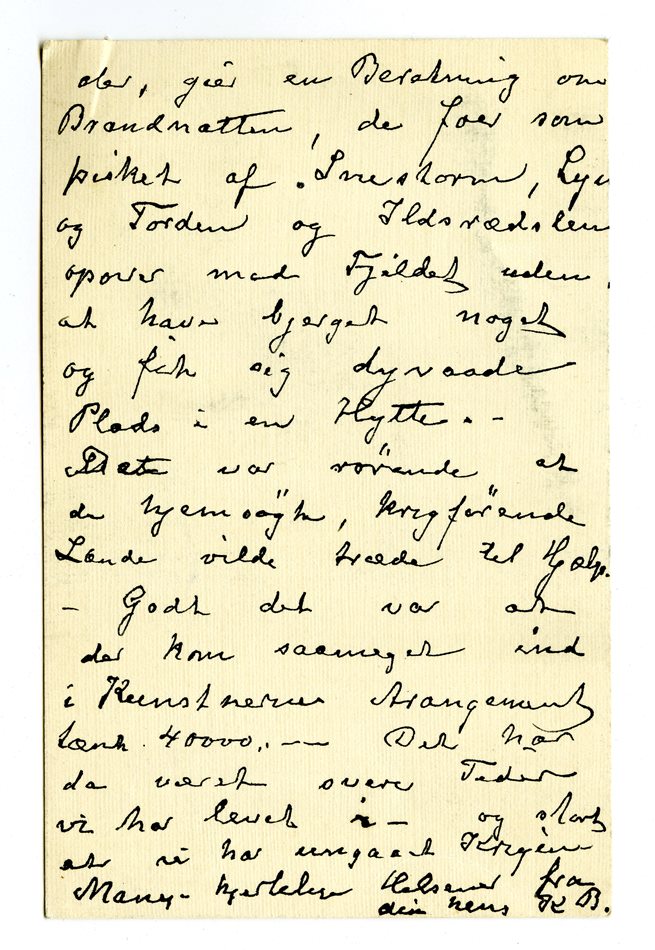 der, gir en Beretning om
Brandnatten, de foer som
pisket af Snestorm, Lyn
og Torden og Ildsrædslen
opover mod Fjeldet uden
at have bjerget noget
og fik sig dyvaade
Plads i en Hytte. –
Dette var rörende at
de hjemsögte, krigförende
Lande vilde træde til Hjælp.
– Godt det var at
der kom saameget ind
i Kunstnernes Arangement
tænk 40000,. –– Det har
da været svere Tider
vi har levet i – og stort
at vi har ungaaet Krigen
Mange hjertelige Helsener fra
din hens K B.